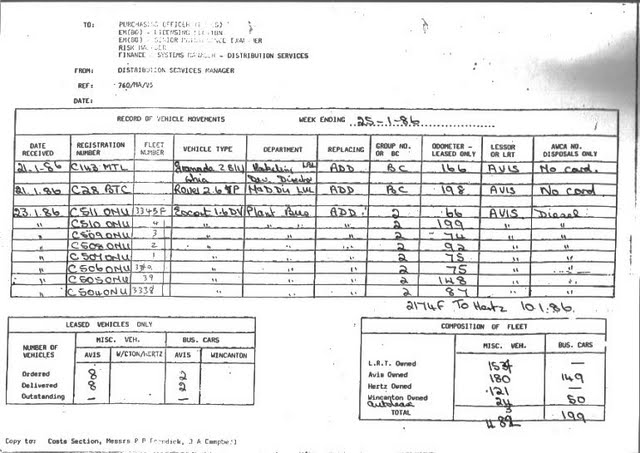 TO: PURCHASING OFFICER
EM(BG) - LICENSING
EM(BG) - SENIOR
RISK
FINANCE - SYSTEMS MANAGER - DISTRIBUTION SERVICES
FROM: DISTRIBUTION SERVICES MANAGER
REF: 760/MA/VS
DATE:
RECORD OF VEHICLE MOVEMENTS WEEK ENDING 25-1-86
DATE RECEIVED REGISTRATION NUMBER FLEET NUMBER VEHICLE TYPE DEPARTMENT REPLACING GROUP NO. OR BC ODOMETER - LEASED ONLY LESSOR OR LRT AWCA NO. DISPOSALS ONLY
21.1.86 C143 MTL Granada 2.8 Ghia Marketing Dev. Director LBL ADD BC 166 AVIS No card
21.1.86 C28 BTC Rover 2.6 LUL ADD BC 198 AVIS No card
23.1.86 C511 ONU 3345F Escort 1.6 DV Plant Bus ADD 2 66 AVIS Diesel
" C510 ONU 4 " " " 2 199 " "
" C509 ONU 3 " " " 2 74 " "
" C508 ONU 2 " " " 2 92 " "
" C507 ONU 1 " " " 2 75 " "
" C506 ONU 3340 " " " 2 75 " "
" C505 ONU 39 " " " 2 148 " "
" C504 ONU 3338 2 87 " "
2174F To Hertz 10.1.86.
LEASED VEHICLES ONLY
NUMBER OF VEHICLES MISC. VEH. BUS. CARS
AVIS W/CTON/HERTZ AVIS WINCANTON
Ordered 8 2
Delivered 8 2
Outstanding — —
COMPOSITION OF FLEET
MISC. VEH. BUS. CARS
L.R.T. Owned —
Avis Owned 180 149
Hertz Owned 121 —
Wincanton Owned 24 50
TOTAL 482 199
Copy to: Costs Section, Messrs P P J A Campbell